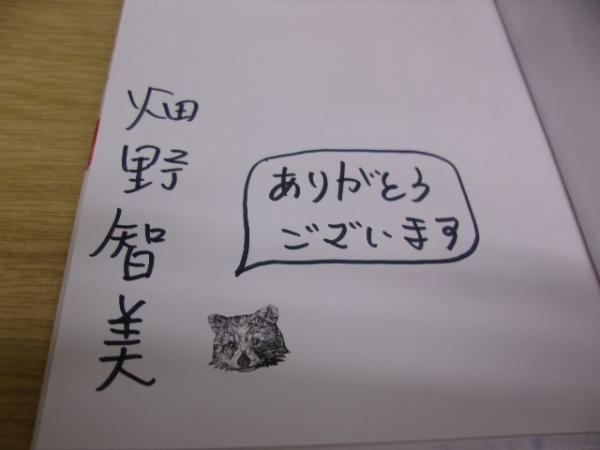 畑野智美
ありがとう
ございます